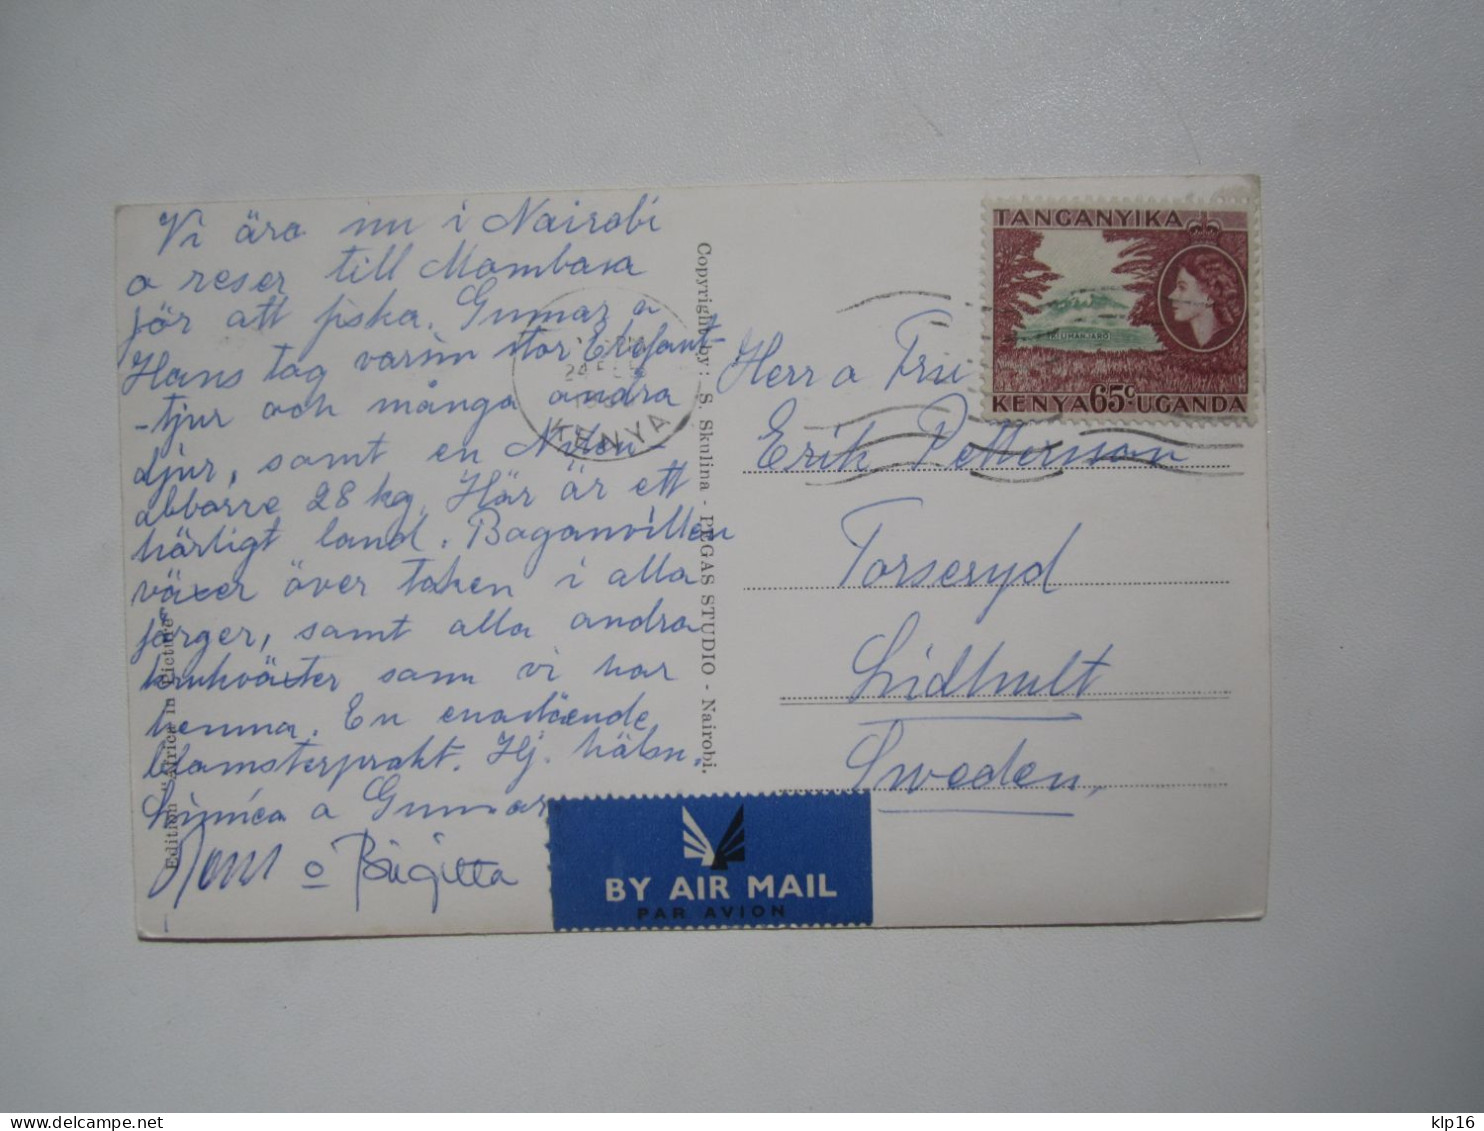 Vi äro nu i Nairobi
o reser till Mombasa
för att fiska. Gunnar o
Hans tog varsin stor Elefant-
-tjur och många andra
djur, samt en Nilen-
abborre 28 kg. Här är ett
härligt land. Baganvillen
växer över taken i alla
färger, samt alla andra
krukväxter som vi har
hemma. En enastående
blomsterprakt. Hj. hälsn.
o Gunnar
Hans o Birgitta
Edition "Africa in Picture"
Copyright by: S. Skulina - PEGAS STUDIO - Nairobi.
24
KENYA
TANGANYIKA
KILIMANJARO
KENYA 65c UGANDA
Herr o Fru
Erik Pettersson
Torseryd
Lidhult
Sweden.
BY AIR MAIL
PAR AVION
klp16